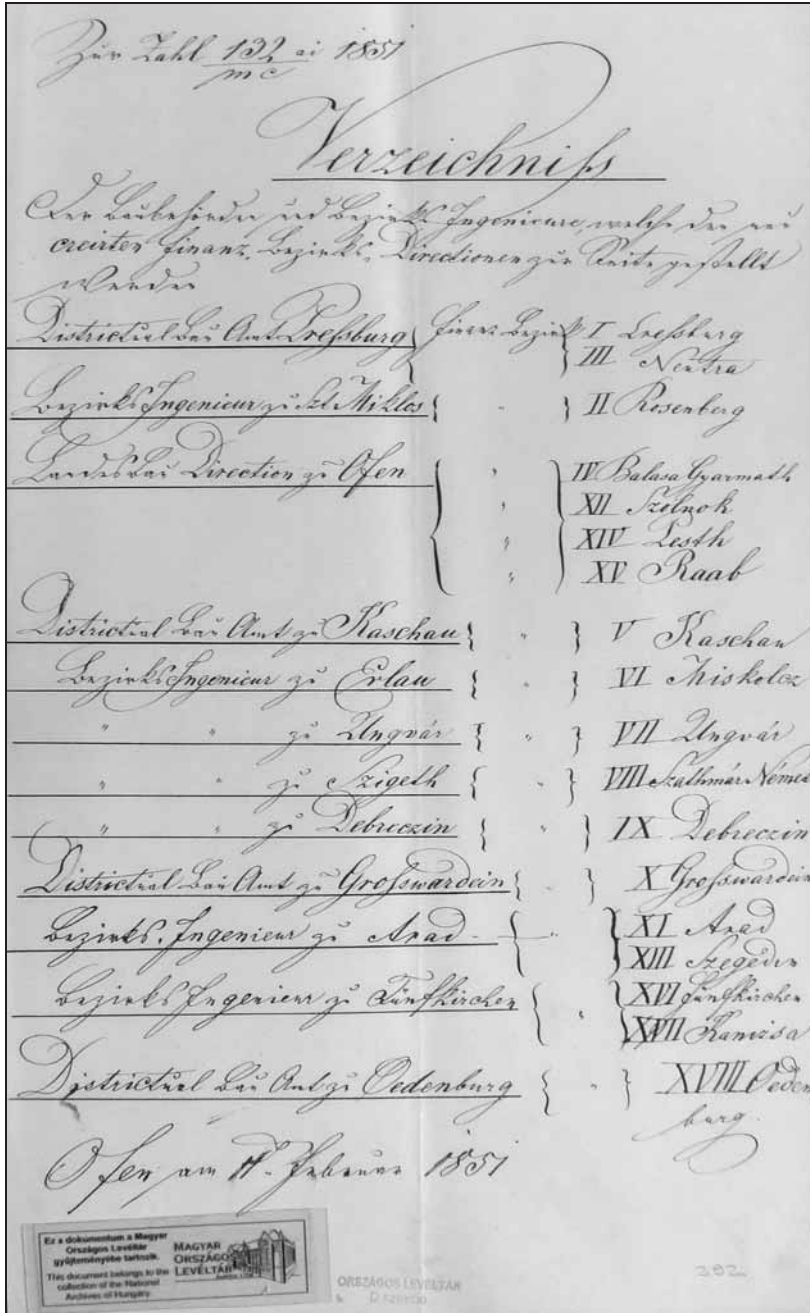 Zur Zahl 132 ai 1851
mc
Verzeichniß
Der Baubehörden und Bezirks Ingenieure, welche den neu
creirten Finanz-Bezirks-Directionen zur Seite gestellt
werden
Districtual Bau Amt Pressburg { Finanz Bezirk } I Pressburg
III Neutra
Bezirks Ingenieur zu Szt Miklos { " } II Rosenberg
Landes Bau Direction zu Ofen { " } IV Balasa Gyarmath
" XII Szolnok
" XIV Pesth
" XV Raab
Districtual Bau Amt zu Kaschau { " } V Kaschau
Bezirks Ingenieur zu Erlau { " } VI Miskolcz
" " zu Ungvár { " } VII Ungvár
" " zu Szigeth { " } VIII Szathmár Néme
" " zu Debreczin { " } IX Debreczin
Districtual Bau Amt zu Grosswardein { " } X Grosswardein
Bezirks-Ingenieur zu Arad { " } XI Arad
XIII Szegedin
Bezirks Ingenieur zu Fünfkirchen { " } XVI Fünfkirchen
XVII Kanizsa
Districtual Bau Amt zu Oedenburg { " } XVIII Oeden
burg.
Ofen am Februar 1851
Ez a dokumentum a Magyar
Országos Levéltár
gyűjteményébe tartozik.
This document belongs to the
collection of the National
Archives of Hungary
MAGYAR
ORSZÁGOS
LEVÉLTÁR
ORSZÁGOS LEVÉLTÁR
392